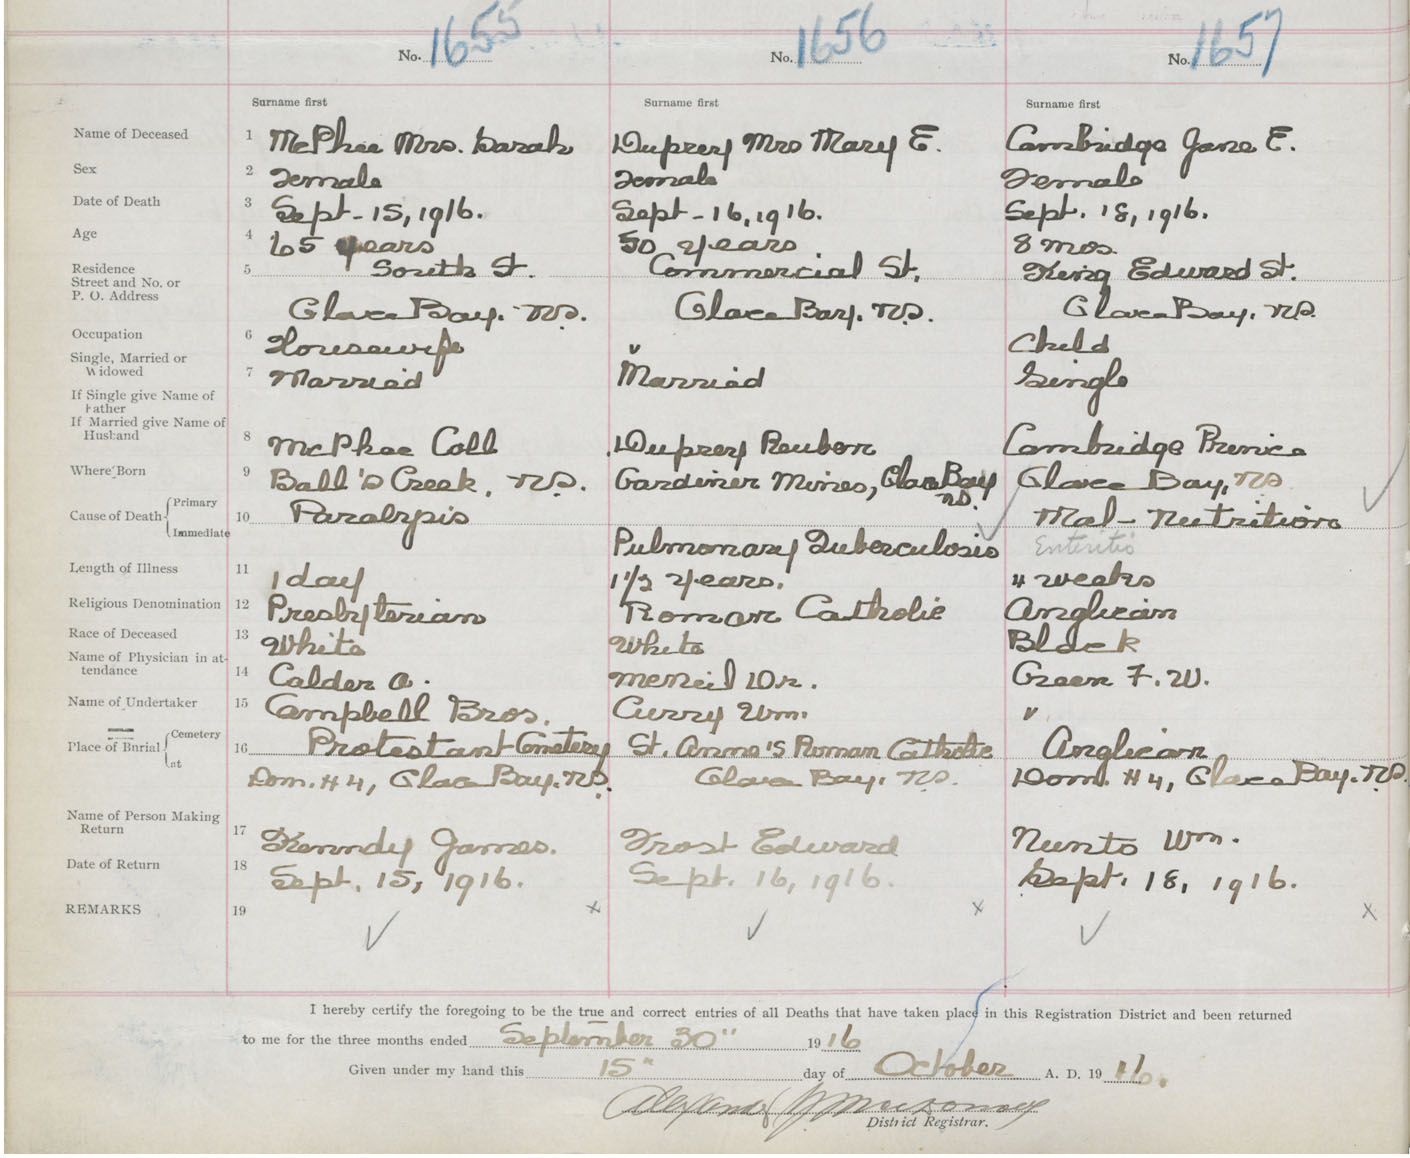 No. 1655 No. 1656 No. 1657
Surname first Surname first Surname first
Name of Deceased 1 McPhee Mrs. Sarah Duprey Mrs Mary E. Cambridge Jane E.
Sex 2 Female Female Female
Date of Death 3 Sept-15, 1916. Sept-16, 1916. Sept. 18, 1916.
Age 4 65 years 50 years 8 mos.
Residence 5 South St. Commercial St, King Edward St.
Street and No. or
P. O. Address Glace Bay. N.S. Glace Bay. N.S. Glace Bay, N.S.
Occupation 6 Housewife " Child
Single, Married or
Widowed 7 Married Married Single
If Single give Name of
Father
If Married give Name of
Husband 8 McPhee Coll Duprey Reuben Cambridge Prince
Where Born 9 Ball's Creek, N.S. Gardiner Mines, Glace Bay N.S. Glace Bay, NS
Cause of Death Primary 10 Paralysis Mal-Nutrition
Immediate Pulmonary Tuberculosis Enteritis
Length of Illness 11 1 day 1 1/2 years. 4 weeks
Religious Denomination 12 Presbyterian Roman Catholic Anglican
Race of Deceased 13 White White Black
Name of Physician in at-
tendance 14 Calder A. McNeil Dr. Green F. W.
Name of Undertaker 15 Campbell Bros. Curry Wm. "
Place of Burial Cemetery 16 Protestant Cemetery St. Anne's Roman Catholic Anglican
nt Dom. #4, Glace Bay. N.S. Glace Bay. N.S. Dom. #4, Glace Bay. N.S.
Name of Person Making
Return 17 Kenndy James. Frost Edward Nunts Wm.
Date of Return 18 Sept. 15, 1916. Sept. 16, 1916. Sept. 18, 1916.
REMARKS 19
I hereby certify the foregoing to be the true and correct entries of all Deaths that have taken place in this Registration District and been returned
to me for the three months ended September 30" 1916
Given under my hand this 15" day of October A. D. 1916.
Alexander
District Registrar.